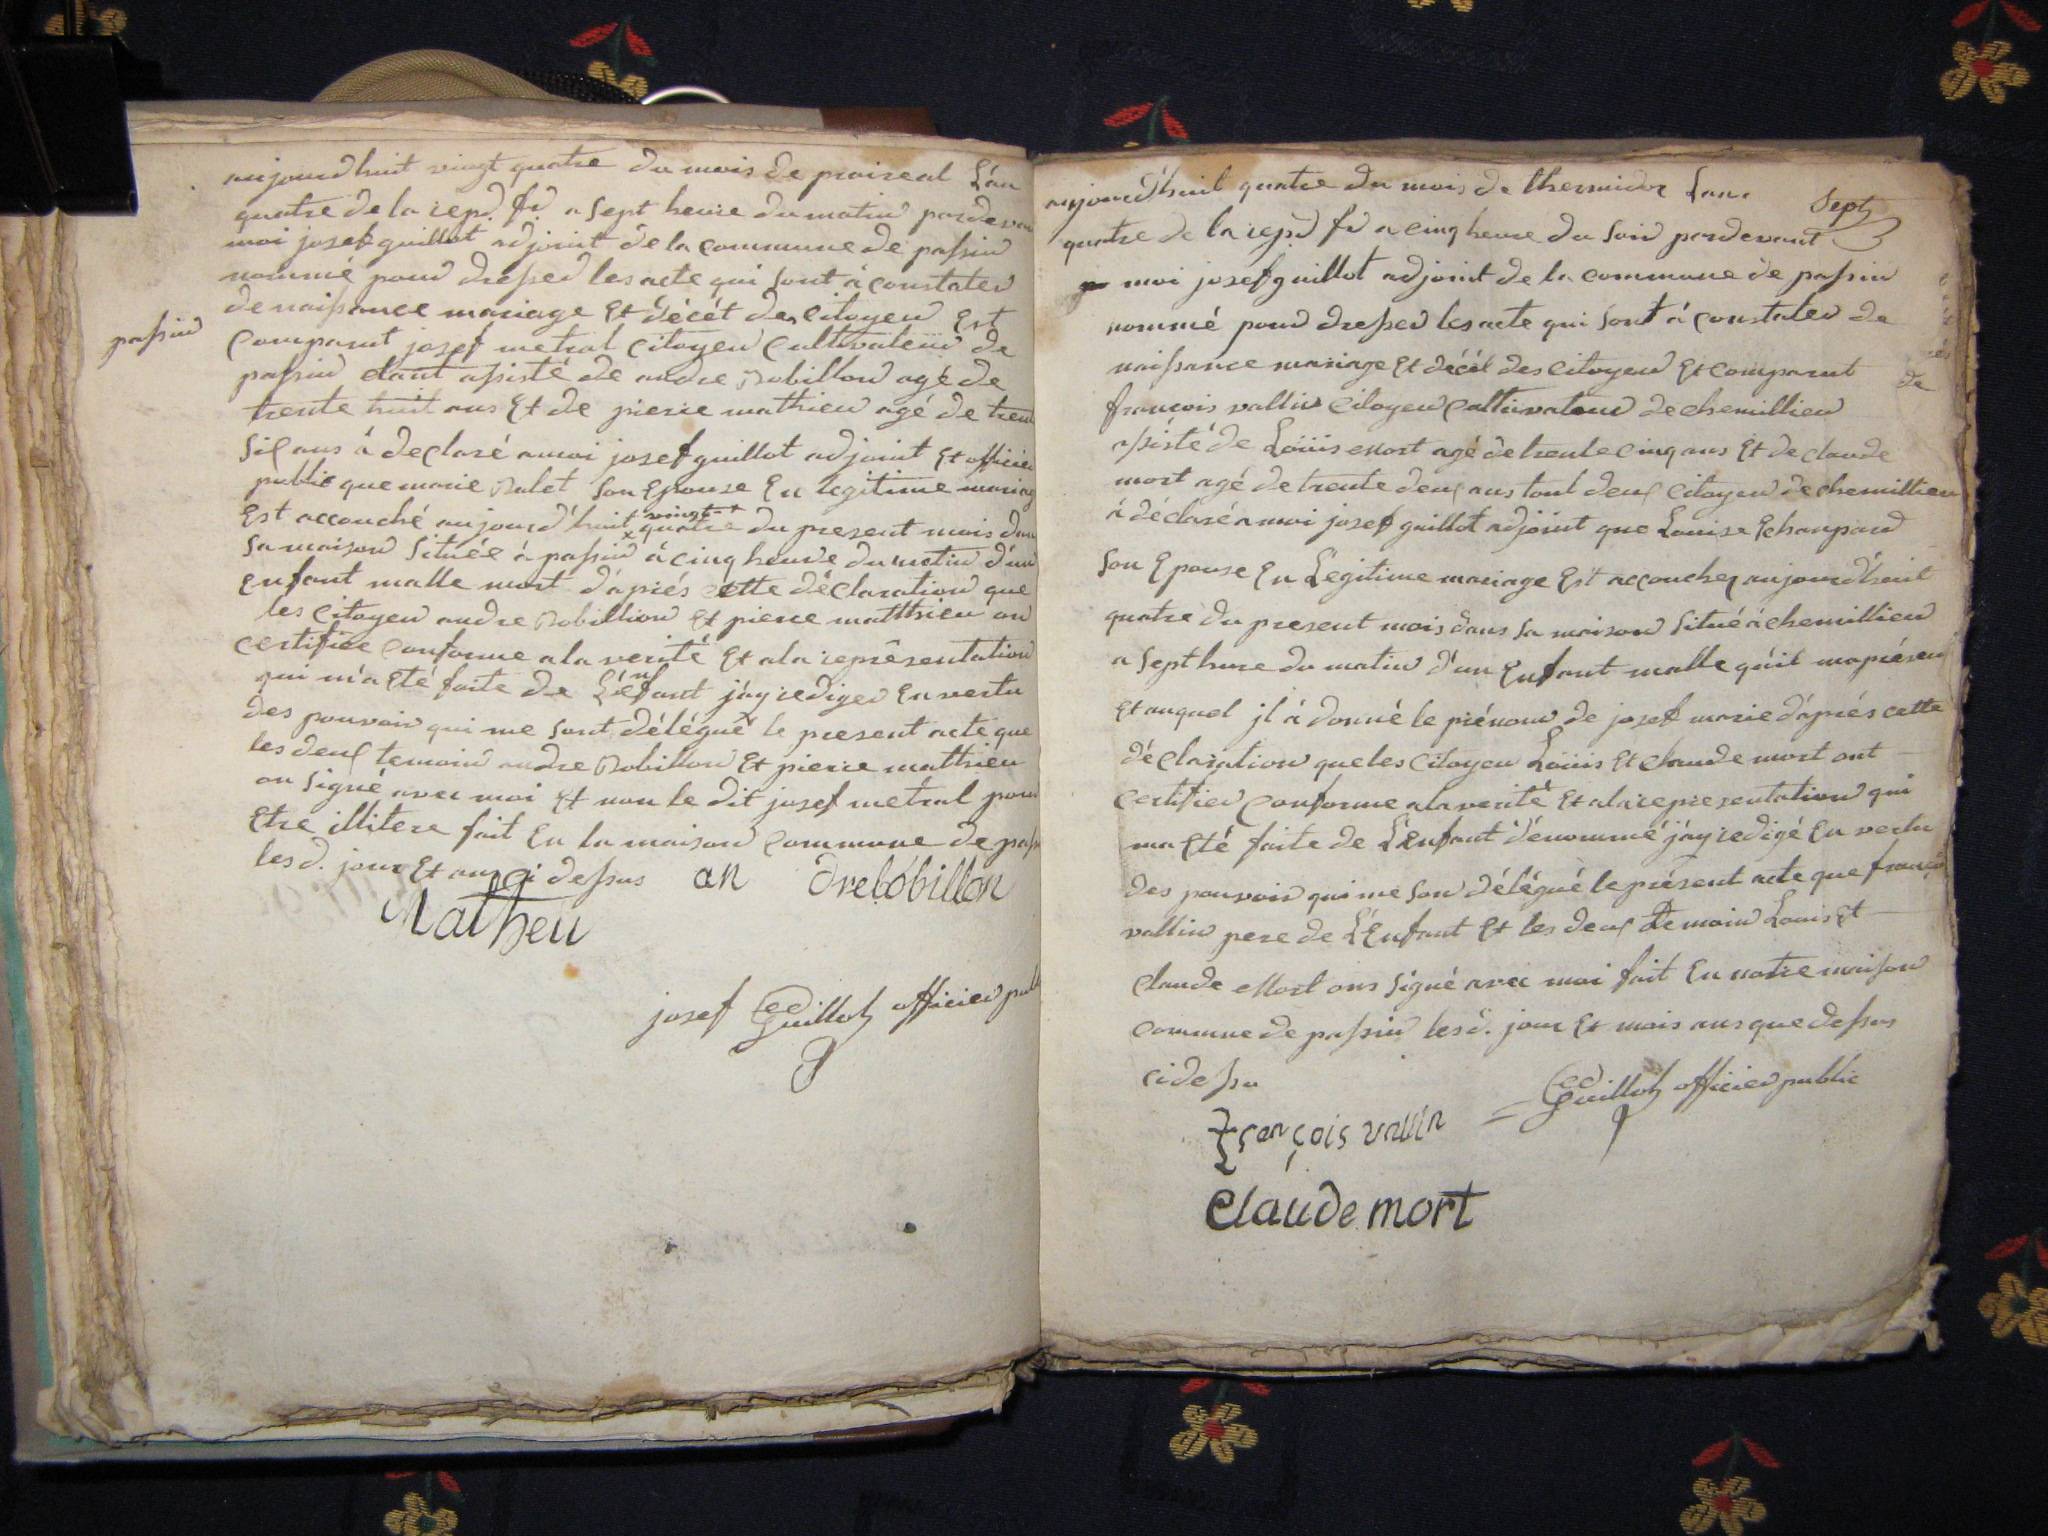 aujourdhuit vingt quatre du mois de praireal L'an
quatre de la repd. fr. a sept heure du matin pardevan
moi josef guillot adjoint de la commune de passin
nommé pour dresser les acte qui sont à constater
de naissance mariage Et décét des citoyen Est
passin
Comparut josef metral citoyen cultivateur de
passin etant assisté de andre Robillon agé de
trente huit ans Et de pierre mathieu agé de tren
six ans à declaré a moi josef guillot adjoint Et officier
public que marie Balet son Epouse En legitime mariag
Est accouché aujourd'huit vingt quatre du present mois dan
sa maison située à passin à cinq heure du matin d'un
enfant malle mort d'aprés cette déclaration que
les citoyen andre Robillion Et pierre matthieu on
certifiée conforme a la verité Et a la représentation
qui m'a Eté faite de L'enfant j'ay rediger En vertu
des pouvoir qui me sont délégué le present acte que
les deux temoin andre Robillon Et pierre mathieu
on signé avec moi Et non le dit josef metral pour
Etre illitere fait En la maison commune de pass
les d. jour Et an ci dessus an drelobillon
Matheu
josef Guillot officier publ
Sept
aujourd'huit quatre du mois de thermidor Lan
quatre de la repd fr a cinq heure du soir pardevant
moi josef guillot adjoint de la commune de passin
nommé pour dresser les acte qui sont à constater de
naissance mariage Et décét des citoyen Et comparut
de
françois vallin citoyen cultivateur de chemillieu
assisté de Loüis Mort agé de trente cinq ans Et de claude
mort agé de trente deux ans tout deux citoyen de chemillieu
à déclaré a moi josef guillot adjoint que Louise Echampard
son Epouse En Legitime mariage Est accoucher aujourd'huit
quatre du present mois dans sa maison situé à chemillieu
a sept hure du matin d'un Enfant malle qu'il ma présen
Et auquel jl à donné le prénom de josef marie d'aprés cette
déclaration que les citoyen Loüis Et claude mort ont
certifier conforme a la verité Et a la representation qui
ma Eté faite de L'enfant dénommé j'ay redigé En vertu
des pouvoir qui me son délégué le présent acte que françois
vallin pere de L'Enfant Et les deux te moin Louis Et
claude Mort ons signé avec moi fait En notre maison
commune de passin les d. jour Et mois ans que dessus
ci dessu
Guillot officier public
François vallin
Claude mort